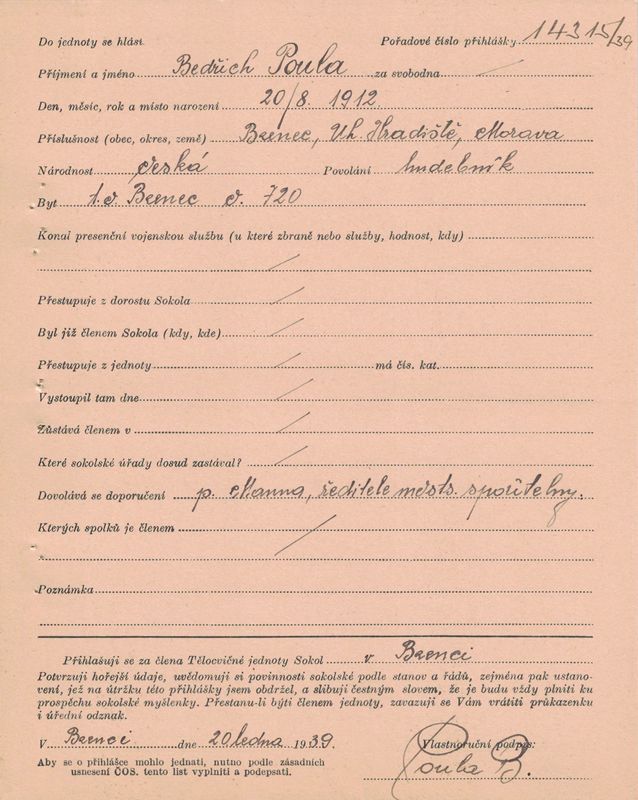 Do jednoty se hlásí Pořadové číslo přihlášky 14315/39
Příjmení a jméno Bedřich Poula za svobodna
Den, měsíc, rok a místo narození 20/8. 1912.
Příslušnost (obec, okres, země) Bzenec, Uh. Hradiště, Morava
Národnost česká Povolání hudebník
Byt t.č. Bzenec č. 720
Konal presenční vojenskou službu (u které zbraně nebo služby, hodnost, kdy)
Přestupuje z dorostu Sokola
Byl již členem Sokola (kdy, kde)
Přestupuje z jednoty má čís. kat.
Vystoupil tam dne
Zůstává členem v
Které sokolské úřady dosud zastával?
Dovolává se doporučení p. Manna, ředitele městs. spořitelny.
Kterých spolků je členem
Poznámka
Přihlašuji se za člena Tělocvičné jednoty Sokol v Bzenci
Potvrzuji hořejší údaje, uvědomuji si povinnosti sokolské podle stanov a řádů, zejména pak ustano-
vení, jež na útržku této přihlášky jsem obdržel, a slibuji čestným slovem, že je budu vždy plniti ku
prospěchu sokolské myšlenky. Přestanu-li býti členem jednoty, zavazuji se Vám vrátiti průkazenku
i úřední odznak.
V Bzenci dne 20 ledna 1939.
Vlastnoruční podpis:
Aby se o přihlášce mohlo jednati, nutno podle zásadních
usnesení ČOS. tento list vyplniti a podepsati.
Poula B.